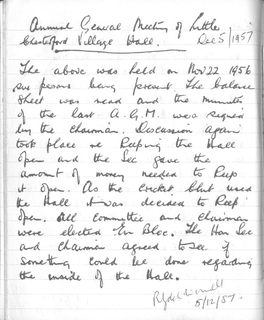 Annual General Meeting of Little
Chesterford Village Hall. Dec 5/1957
The above was held on Nov 22 1956
six persons being present The balance
sheet was read and the minutes
of the last A.G.M. was signed
by the Chairman. Discussion again
took place re Keeping the Hall
open and the Sec gave the
amount of money needed to keep
it open. As the cricket club used
the Hall it was decided to keep
open. All committee and Chairman
were elected En Bloc. The Hon Sec
and Chairman agreed to see if
something could be done regarding
the inside of the Hall.
5/12/57.